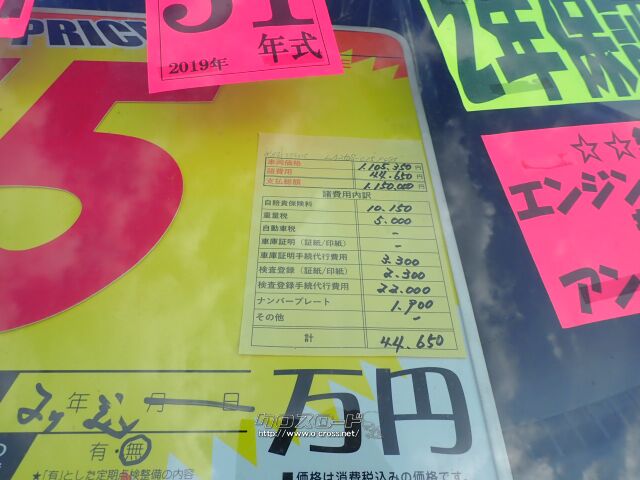 PRICE
31
2019年 年式
2年保
5
車両価格 1.105.350円
諸費用 44.650円
支払総額 1.150.000円
諸費用内訳
自賠責保険料 10.150
重量税 5.000
自動車税 -
車庫証明（証紙/印紙） -
車庫証明手続代行費用 3.300
検査登録（証紙/印紙） 2.300
検査登録手続代行費用 22.000
ナンバープレート 1.900
その他 -
計 44.650
☆☆
エンジン
アン
年 月 日
有・無
万円
クロスロード
http://www.o.cross.net/
★「有」とした定期点検整備の内容
■価格は消費税込みの価格です。